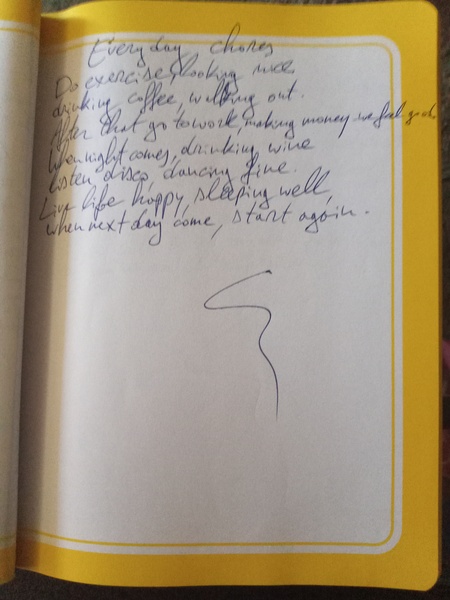 Everyday chores
Do exercise, looking nice
drinking coffee, walking out.
After that go to work, making money we feel good
When night comes, drinking wine
listen disco, dancing fine.
Live life happy, sleeping well,
when next day come, start again.